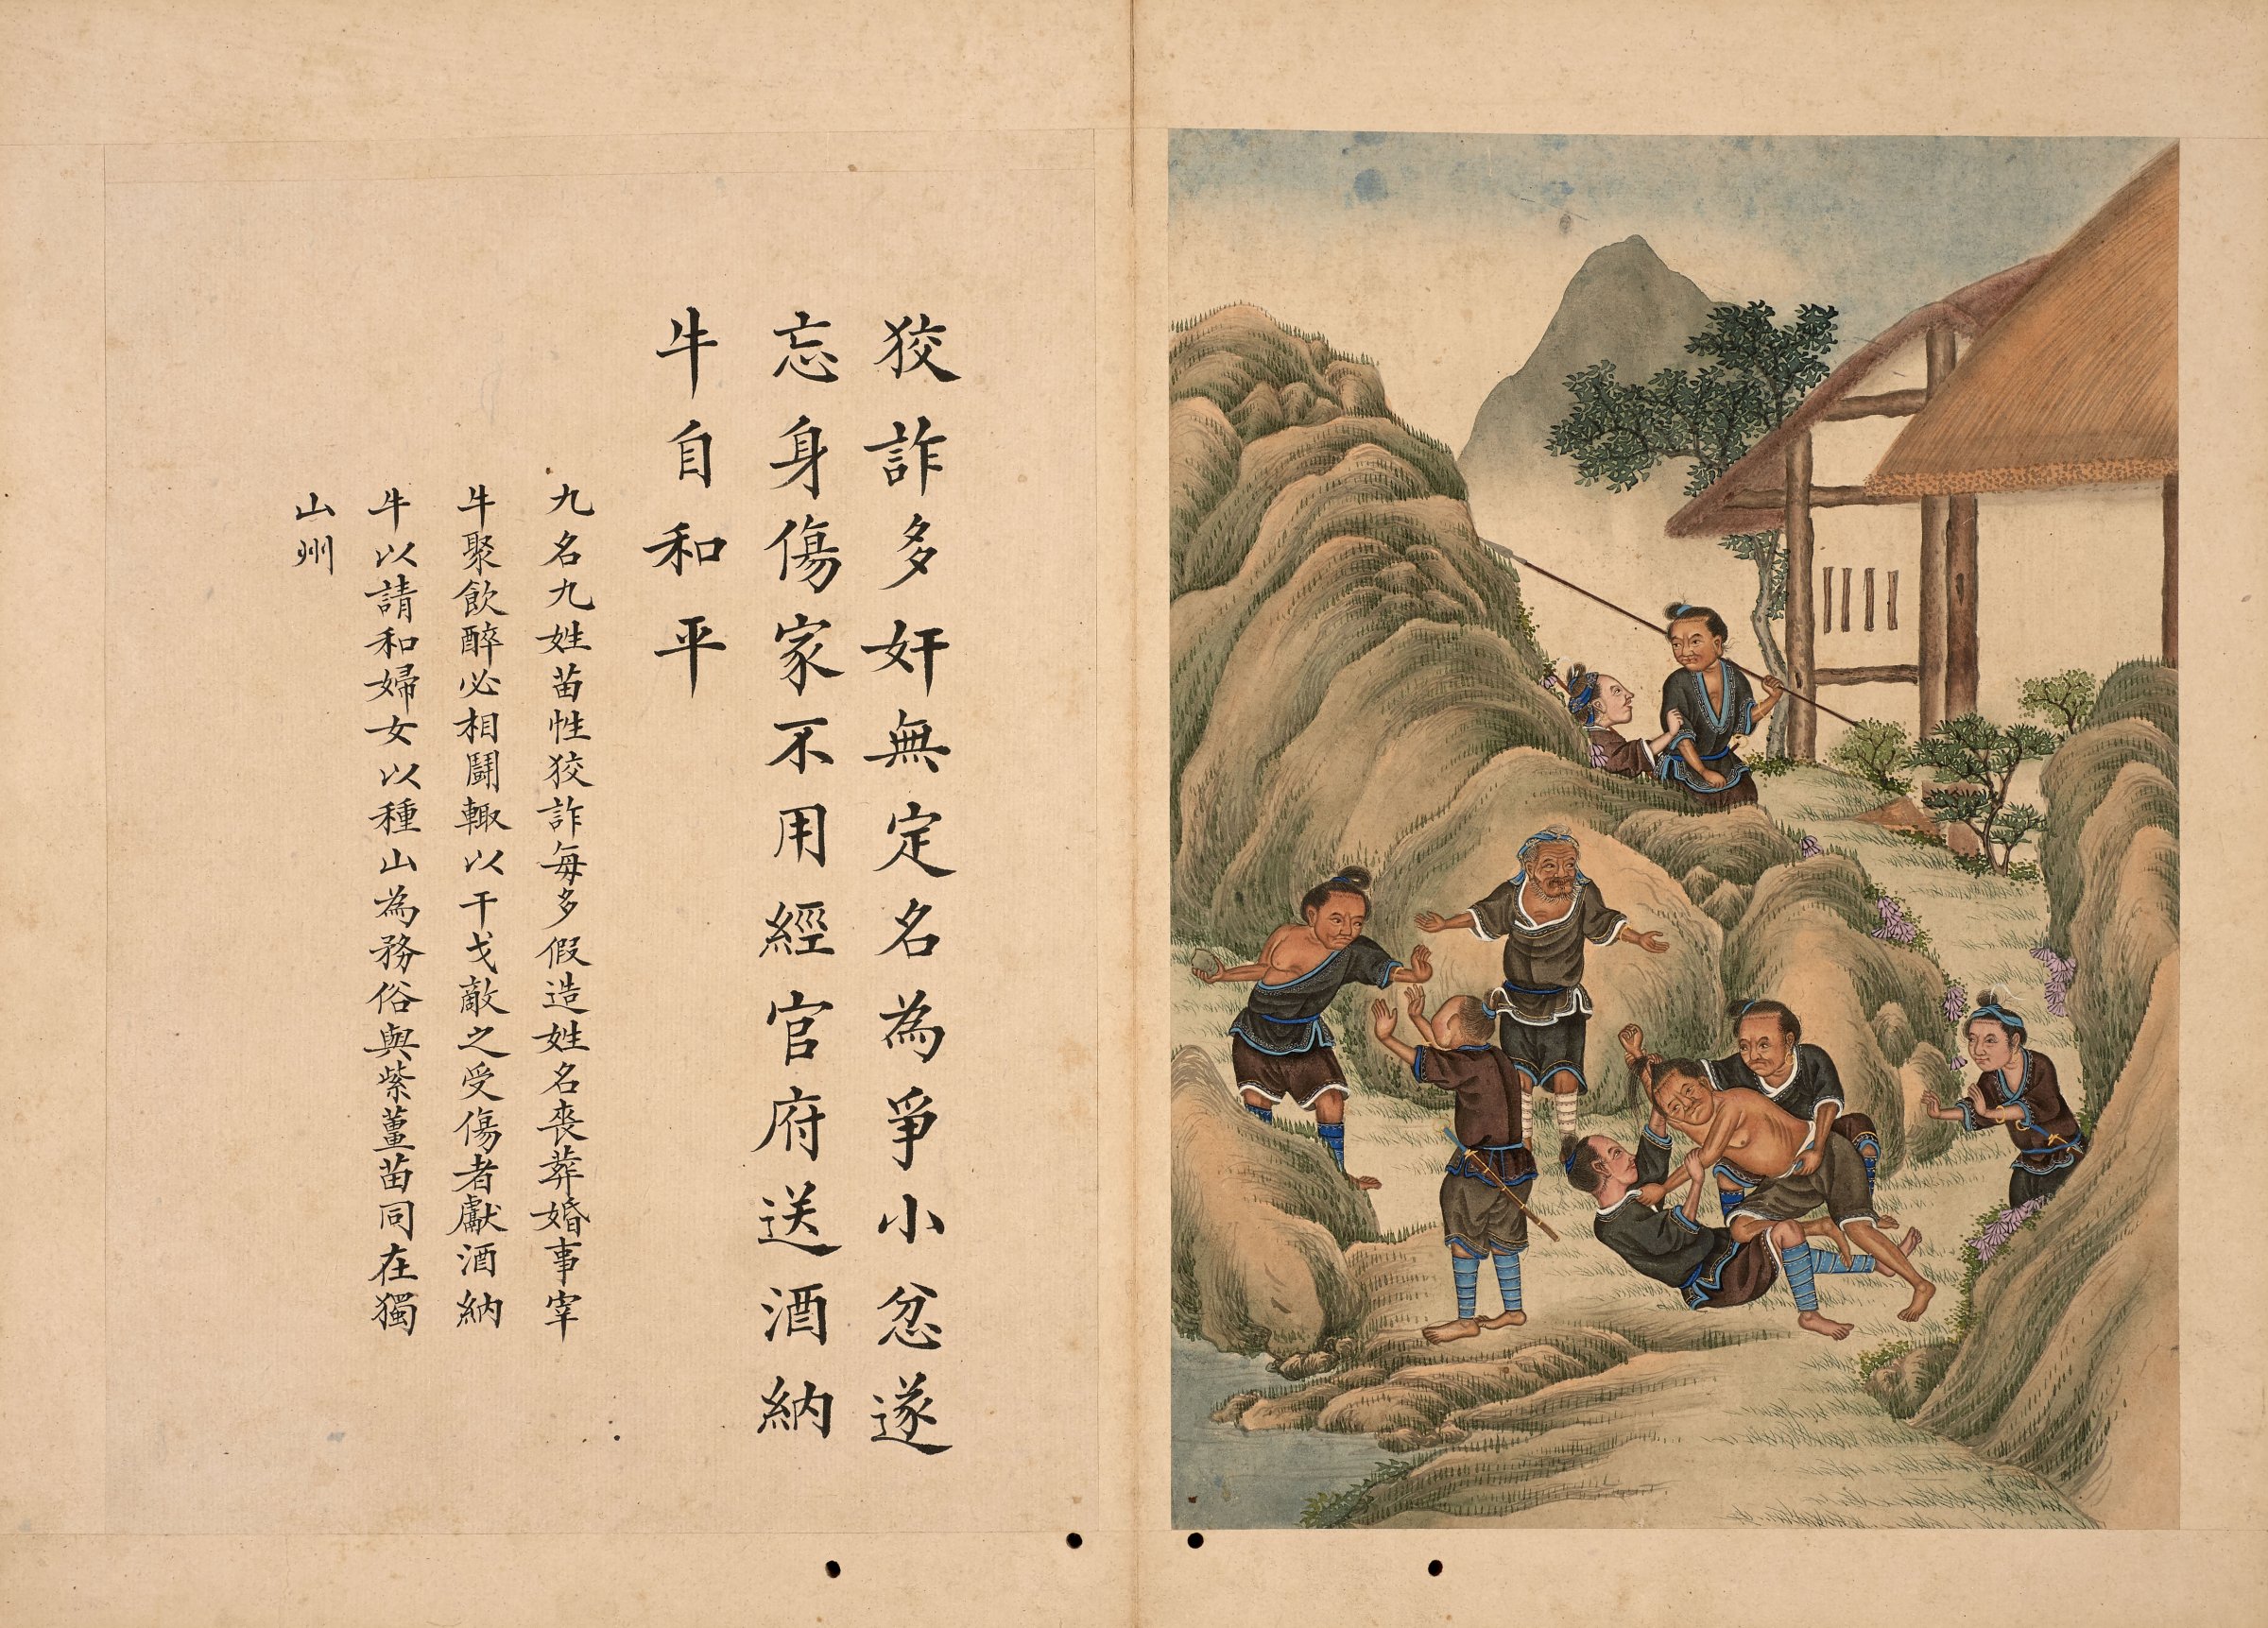 狡詐多奸無定名為爭小忿遂
忘身傷家不用經官府送酒納
牛自和平
九名九姓苗性狡詐每多假造姓名喪葬婚事宰
牛聚飲醉必相鬪輙以干戈敵之受傷者獻酒納
牛以請和婦女以種山為務俗與紫薑苗同在獨
山州